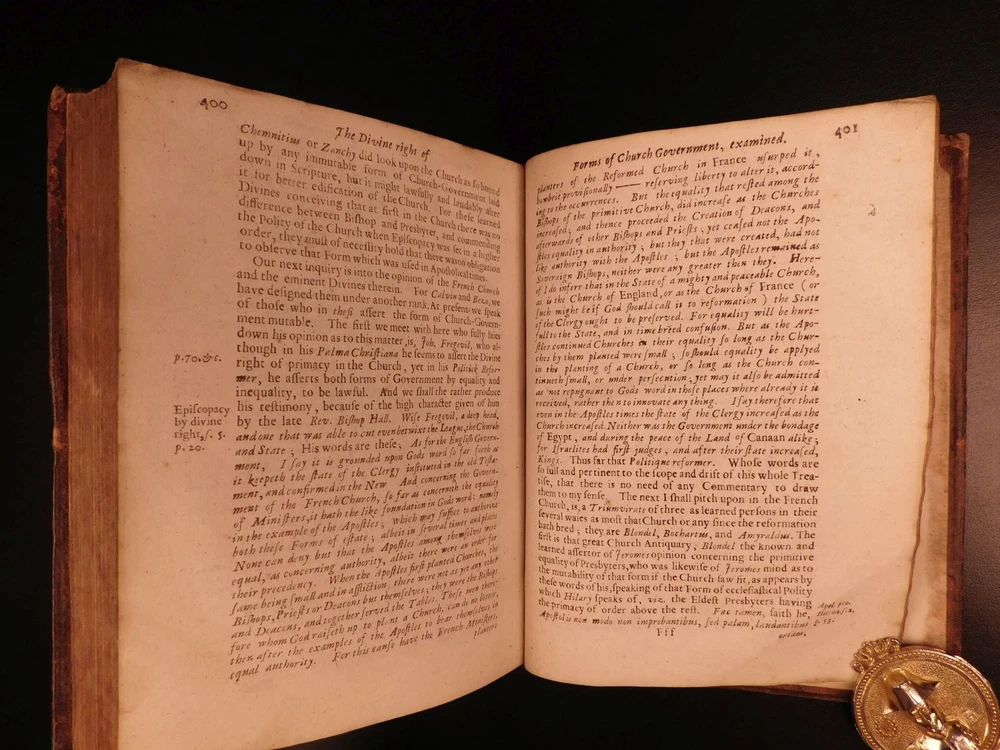 400
The Divine right of
Chemnitius or Zanchy did look upon the Church as so bound
up by any immutable form of Church-Government laid
down in Scripture, but it might lawfully and laudably alter
it for better edification of the Church. For these learned
Divines conceiving that at first in the Church there was no
difference between Bishop and Presbyter, and commending
the Polity of the Church when Episcopacy was set in a higher
order, they must of necessity hold that there was no obligation
to observe that Form which was used in Apostolical times.
Our next inquiry is into the opinion of the French Church
and the eminent Divines therein. For Calvin and Beza, we
have designed them under another rank. At present we speak
of those who in thesi assert the form of Church-Govern-
ment mutable. The first we meet with here who fully layes
down his opinion as to this matter, is, Joh. Fregevil, who al-
though in his Palma Christiana he seems to assert the Divine
p. 70. &c.
right of primacy in the Church, yet in his Politick Refor-
mer, he asserts both forms of Government by equality and
inequality, to be lawful. And we shall the rather produce
his testimony, because of the high character given of him
Episcopacy
by divine
right, s. 5.
p. 20.
by the late Rev. Bishop Hall. Wise Fregevil, a deep head,
and one that was able to cut even betwixt the League, the Church
and State; His words are these; As for the English Govern-
ment, I say it is grounded upon Gods word so far forth as
it keepeth the state of the Clergy instituted in the old Testa-
ment, and confirmed in the New. And concerning the Govern-
ment of the French Church, so far as concerneth the equality
of Ministers, it hath the like foundation in Gods word: namely
in the example of the Apostles; which may suffice to authorize
both these Forms of estate; albeit in several times and places
None can deny but that the Apostles among themselves were
equal, as concerning authority, albeit there were an order for
their precedency. When the Apostles first planted Churches, the
same being small and in affliction, there were not as yet any other
Bishops, Priests or Deacons but themselves; they were the Bishops
and Deacons, and together served the Tables. Those men there-
fore whom God raiseth up to plant a Church, can do no better,
then after the examples of the Apostles to bear themselves in
equal authority. For this cause have the French Ministers,
planters
401
Forms of Church Government, examined.
planters of the Reformed Church in France usurped it,
howbeit provisionally —— reserving liberty to alter it, accord-
ing to the occurrences. But the equality that rested among the
Bishops of the primitive Church, did increase as the Churches
increased; and thence proceeded the Creation of Deacons, and
afterwards of other Bishops and Priests; yet ceased not the Apo-
stles equality in authority; but they that were created, had not
like authority with the Apostles; but the Apostles remained as
Soveraign Bishops, neither were any greater then they. Here-
of I do infer that in the State of a mighty and peaceable Church,
as is the Church of England, or as the Church of France (or
such might be if God should call it to reformation) the State
of the Clergy ought to be preserved. For equality will be hurt-
full to the State, and in time breed confusion. But as the Apo-
stles continued Churches in their equality so long as the Chur-
ches by them planted were small; so should equality be applyed
in the planting of a Church, or so long as the Church con-
tinueth small, or under persecution; yet may it also be admitted
as not repugnant to Gods word in those places where already it is
received, rather then to innovate any thing. I say therefore that
even in the Apostles times the state of the Clergy increased as the
Church increased. Neither was the Government under the bondage
of Egypt, and during the peace of the Land of Canaan alike;
for Israelites had first judges, and after their state increased,
Kings. Thus far that Politique reformer. Whose words are
so full and pertinent to the scope and drift of this whole Trea-
tise, that there is no need of any Commentary to draw
them to my sense. The next I shall pitch upon in the French
Church, is, a Triumvirate of three as learned persons in their
several waies as most that Church or any since the reformation
hath bred; they are Blondel, Bochartus, and Amyraldus. The
first is that great Church Antiquary; Blondel the known and
learned assertor of Jeromes opinion concerning the primitive
equality of Presbyters, who was likewise of Jeromes mind as to
the mutability of that form if the Church saw fit, as appears by
these words of his, speaking of that Form of ecclesiastical Polity
which Hilary speaks of, viz. the Eldest Presbyters having
the primacy of order above the rest. Fac tamen, saith he,
Apostolis non modo non improbantibus, sed palam laudantibus
Apol. pro.
Hieron. s. 2.
p. 53.
Fff
ortam,